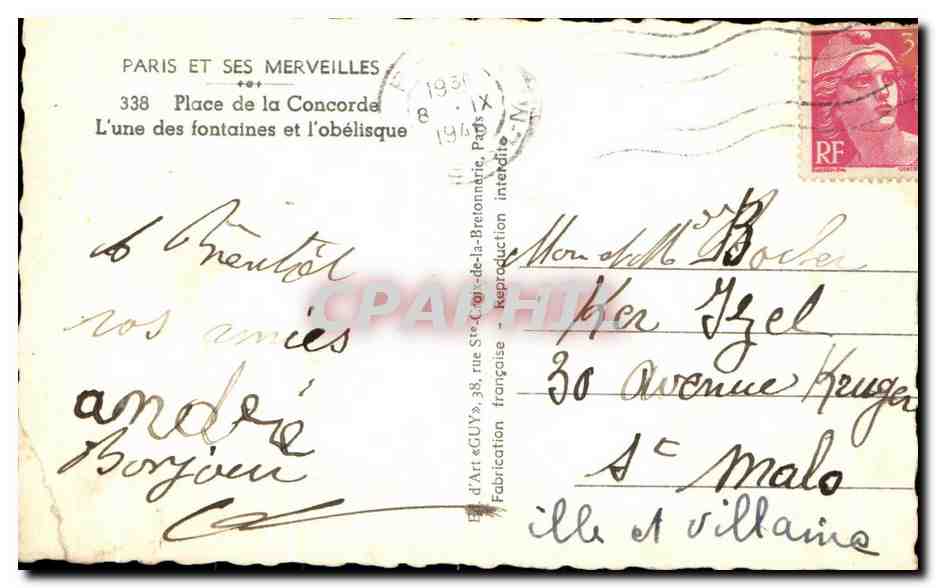 PARIS ET SES MERVEILLES
338 Place de la Concorde
L'une des fontaines et l'obélisque
à Bientôt
vos amies
andrée
Bonjour
Edit. d'Art «GUY», 38, rue Ste-Croix-de-la-Bretonnerie, Paris
Fabrication française - Reproduction interdite
1930
8 . IX
194
3
RF
Mon et Me Bocher
Ker Izel
30 Avenue Kruger
St Malo
ille et villaine
CPAPHIL